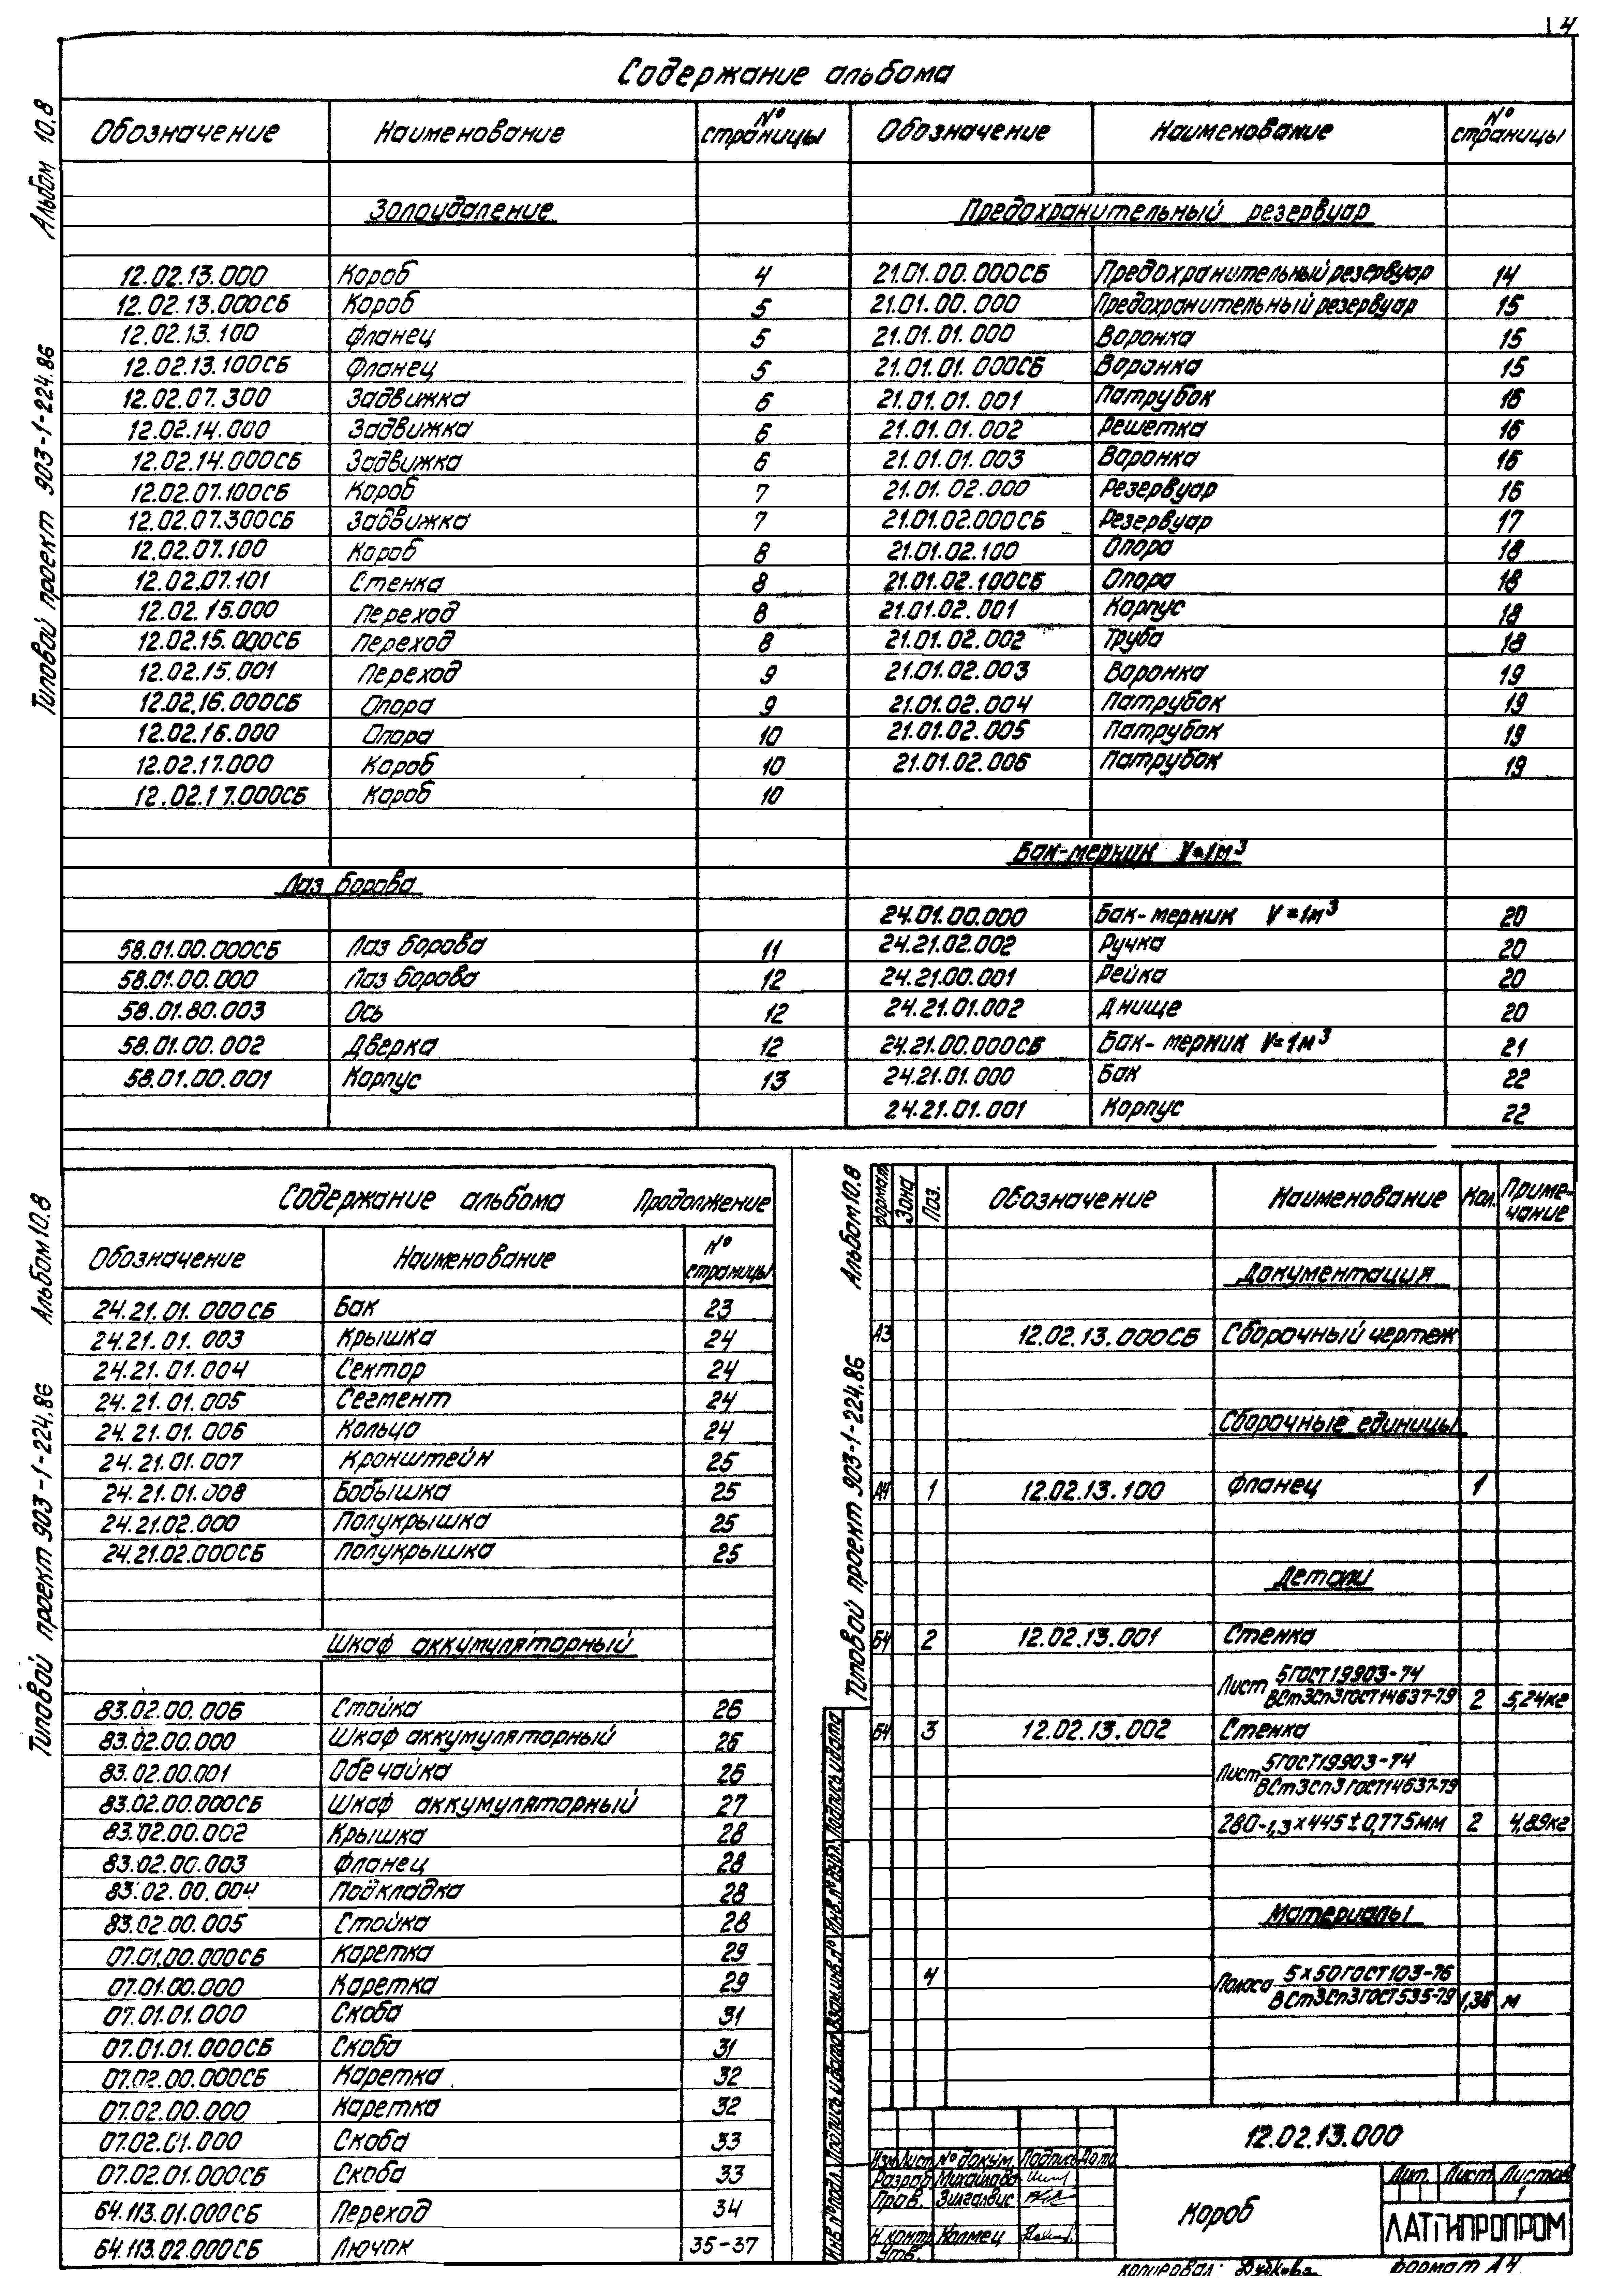 4
Содержание альбома
Альбом 10.8
Типовой проект 903-1-224.86
Обозначение Наименование № страницы Обозначение Наименование № страницы
Золоудаление Предохранительный резервуар
12.02.13.000 Короб 4 21.01.00.000СБ Предохранительный резервуар 14
12.02.13.000СБ Короб 5 21.01.00.000 Предохранительный резервуар 15
12.02.13.100 Фланец 5 21.01.01.000 Воронка 15
12.02.13.100СБ Фланец 5 21.01.01.000СБ Воронка 15
12.02.07.300 Задвижка 6 21.01.01.001 Патрубок 16
12.02.14.000 Задвижка 6 21.01.01.002 Решетка 16
12.02.14.000СБ Задвижка 6 21.01.01.003 Воронка 16
12.02.07.100СБ Короб 7 21.01.02.000 Резервуар 16
12.02.07.300СБ Задвижка 7 21.01.02.000СБ Резервуар 17
12.02.07.100 Короб 8 21.01.02.100 Опора 18
12.02.07.101 Стенка 8 21.01.02.100СБ Опора 18
12.02.15.000 Переход 8 21.01.02.001 Корпус 18
12.02.15.000СБ Переход 8 21.01.02.002 Труба 18
12.02.15.001 Переход 9 21.01.02.003 Воронка 19
12.02.16.000СБ Опора 9 21.01.02.004 Патрубок 19
12.02.16.000 Опора 10 21.01.02.005 Патрубок 19
12.02.17.000 Короб 10 21.01.02.006 Патрубок 19
12.02.17.000СБ Короб 10
Бак-мерник V=1м³
Лаз борова
24.01.00.000 Бак-мерник V=1м³ 20
58.01.00.000СБ Лаз борова 11 24.21.02.002 Ручка 20
58.01.00.000 Лаз борова 12 24.21.00.001 Рейка 20
58.01.80.003 Ось 12 24.21.01.002 Днище 20
58.01.00.002 Дверка 12 24.21.00.000СБ Бак-мерник V=1м³ 21
58.01.00.001 Корпус 13 24.21.01.000 Бак 22
24.21.01.001 Корпус 22
Альбом 10.8
Типовой проект 903-1-224.86
Содержание альбома Продолжение
Обозначение Наименование № страницы
24.21.01.000СБ Бак 23
24.21.01.003 Крышка 24
24.21.01.004 Сектор 24
24.21.01.005 Сегмент 24
24.21.01.006 Кольцо 24
24.21.01.007 Кронштейн 25
24.21.01.008 Бобышка 25
24.21.02.000 Полукрышка 25
24.21.02.000СБ Полукрышка 25
Шкаф аккумуляторный
83.02.00.006 Стойка 26
83.02.00.000 Шкаф аккумуляторный 26
83.02.00.001 Обечайка 26
83.02.00.000СБ Шкаф аккумуляторный 27
83.02.00.002 Крышка 28
83.02.00.003 Фланец 28
83.02.00.004 Подкладка 28
83.02.00.005 Стойка 28
07.01.00.000СБ Каретка 29
07.01.00.000 Каретка 29
07.01.01.000 Скоба 31
07.01.01.000СБ Скоба 31
07.02.00.000СБ Каретка 32
07.02.00.000 Каретка 32
07.02.01.000 Скоба 33
07.02.01.000СБ Скоба 33
64.113.01.000СБ Переход 34
64.113.02.000СБ Лючок 35-37
Альбом 10.8
Типовой проект 903-1-224.86
Формат Зона Поз. Обозначение Наименование Кол. Примечание
Документация
А3 12.02.13.000СБ Сборочный чертеж
Сборочные единицы
А4 1 12.02.13.100 Фланец 1
Детали
Б4 2 12.02.13.001 Стенка
Лист 5ГОСТ19903-74
ВСт3сп3ГОСТ14637-79 2 5,24кг
Б4 3 12.02.13.002 Стенка
Лист 5ГОСТ19903-74
ВСт3сп3ГОСТ14637-79
280-1,3×445±0,775мм 2 4,89кг
Материалы
4 Полоса 5×50ГОСТ103-76
ВСт3сп3ГОСТ535-79 1,36 м
Инв.№подл. Подпись и дата Взам.инв.№ Инв.№дубл. Подпись и дата
12.02.13.000
Изм Лист №докум. Подпись Дата
Разраб. Михайлова
Пров. Зилгалвис
Н.контр. Калмец
Утв.
Короб
Лит. Лист Листов
1
ЛАТГИПРОПРОМ
Копировал: Формат А4